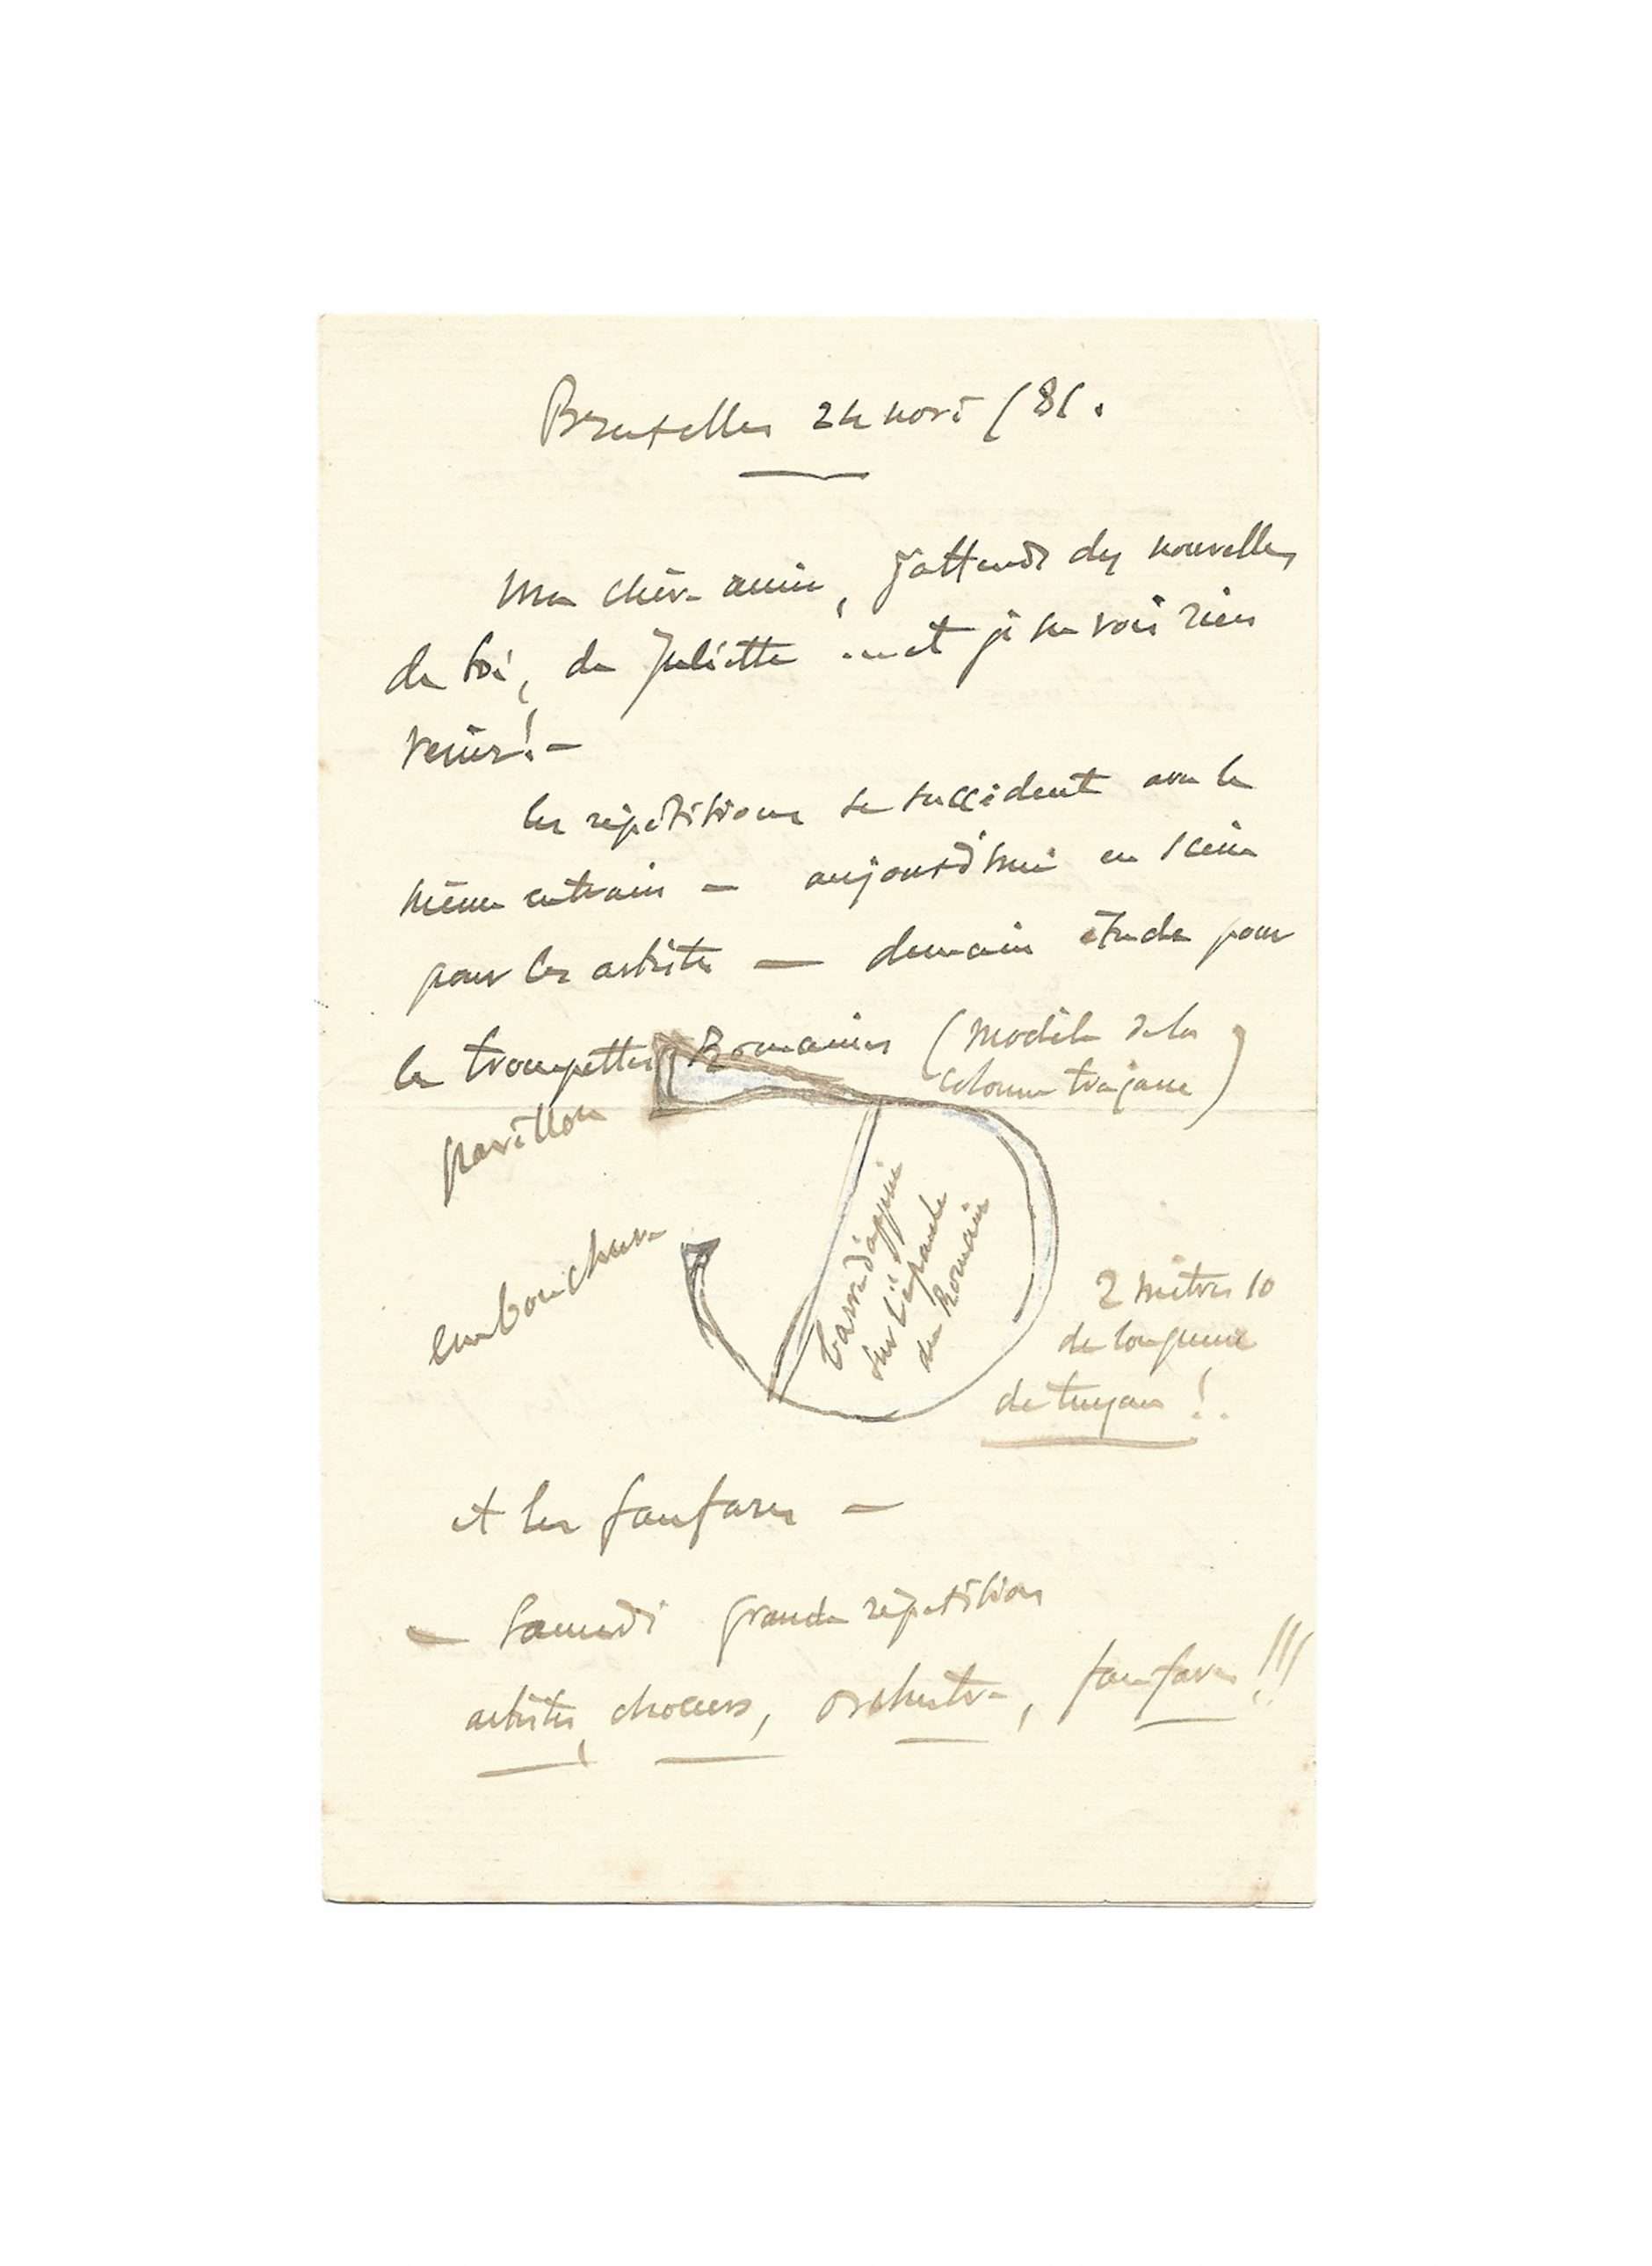 Bruxelles 24 nov: /81.
Ma chère amie, j'attends des nouvelles
de toi, de Juliette ... et je ne vois rien
venir! —
les répétitions se succèdent avec le
même entrain — aujourd'hui en scène
pour les artistes — demain étude pour
les trompettes Romaines (modèle de la
colonne trajane)
pavillon
embouchure
barre d'appui
sur l'épaule
du Romain
2 mètres 10
de longueur
de tuyau!.
et les fanfares —
— Samedi grande répétition
artistes, choeurs, orchestre, fanfares!!!